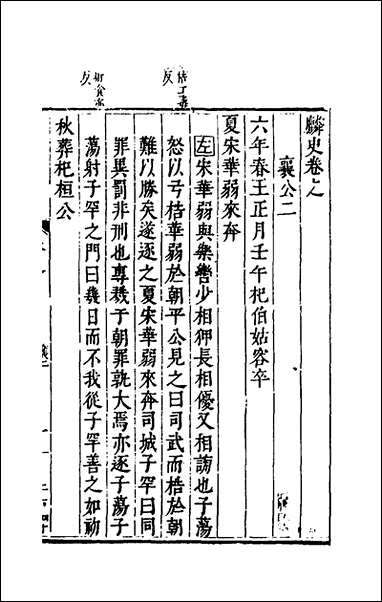 麟史卷之
襄公二
六年春王正月壬午杞伯姑容卒
夏宋華弱來奔
左宋華弱與樂轡少相狎長相優又相謗也子蕩
怒以弓梏華弱於朝平公見之曰司武而梏於朝
難以勝矣遂逐之夏宋華弱來奔司城子罕曰同
罪異罰非刑也專戮于朝罪孰大焉亦逐子蕩子
蕩射子罕之門曰幾日而不我從子罕善之如初
秋葬杞桓公
梏工毒
反
射食亦
反